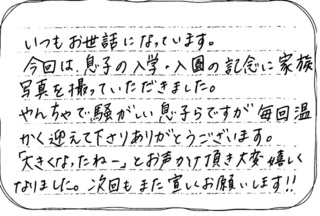 いつもお世話になっています。
今回は、息子の入学・入園の記念に家族
写真を撮っていただきました。
やんちゃで騒がしい息子らですが毎回温
かく迎えて下さりありがとうございます。
「大きくなったねー」とお声かけ頂き大変嬉しく
なりました。次回もまた宜しくお願いします!!